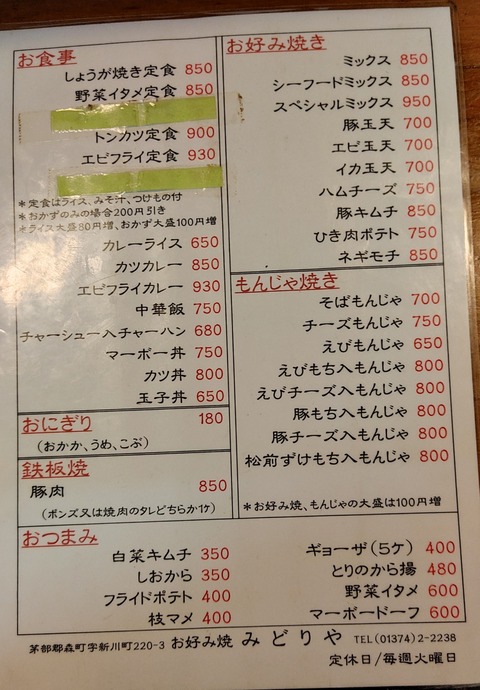 お食事
しょうが焼き定食 850
野菜イタメ定食 850
トンカツ定食 900
エビフライ定食 930
＊定食はライス、みそ汁、つけもの付
＊おかずのみの場合200円引き
＊ライス大盛80円増、おかず大盛100円増
カレーライス 650
カツカレー 850
エビフライカレー 930
中華飯 750
チャーシュー入チャーハン 680
マーボー丼 750
カツ丼 800
玉子丼 650
おにぎり 180
（おかか、うめ、こぶ）
鉄板焼
豚肉 850
（ポンズ又は焼肉のタレどちらか1ヶ）
お好み焼き
ミックス 850
シーフードミックス 850
スペシャルミックス 950
豚玉天 700
エビ玉天 700
イカ玉天 700
ハムチーズ 750
豚キムチ 850
ひき肉ポテト 750
ネギモチ 850
もんじゃ焼き
そばもんじゃ 700
チーズもんじゃ 750
えびもんじゃ 650
えびもち入もんじゃ 800
えびチーズ入もんじゃ 800
豚もち入もんじゃ 800
豚チーズ入もんじゃ 800
松前ずけもち入もんじゃ 800
＊お好み焼、もんじゃの大盛は100円増
おつまみ
白菜キムチ 350
しおから 350
フライドポテト 400
枝マメ 400
ギョーザ（5ケ） 400
とりのから揚 480
野菜イタメ 600
マーボードーフ 600
茅部郡森町字新川町220-3 お好み焼 みどりや TEL（01374）2-2238
定休日/毎週火曜日